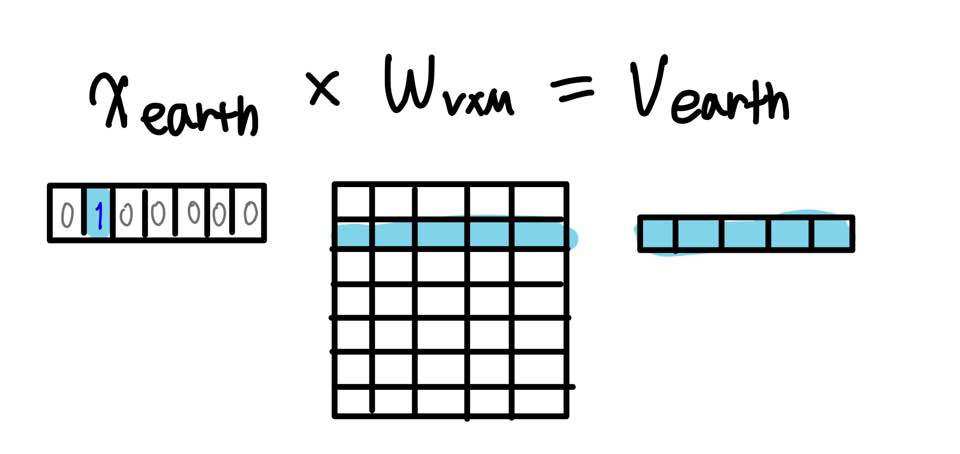 x_earth × W_V×M = V_earth
0 1 0 0 0 0 0